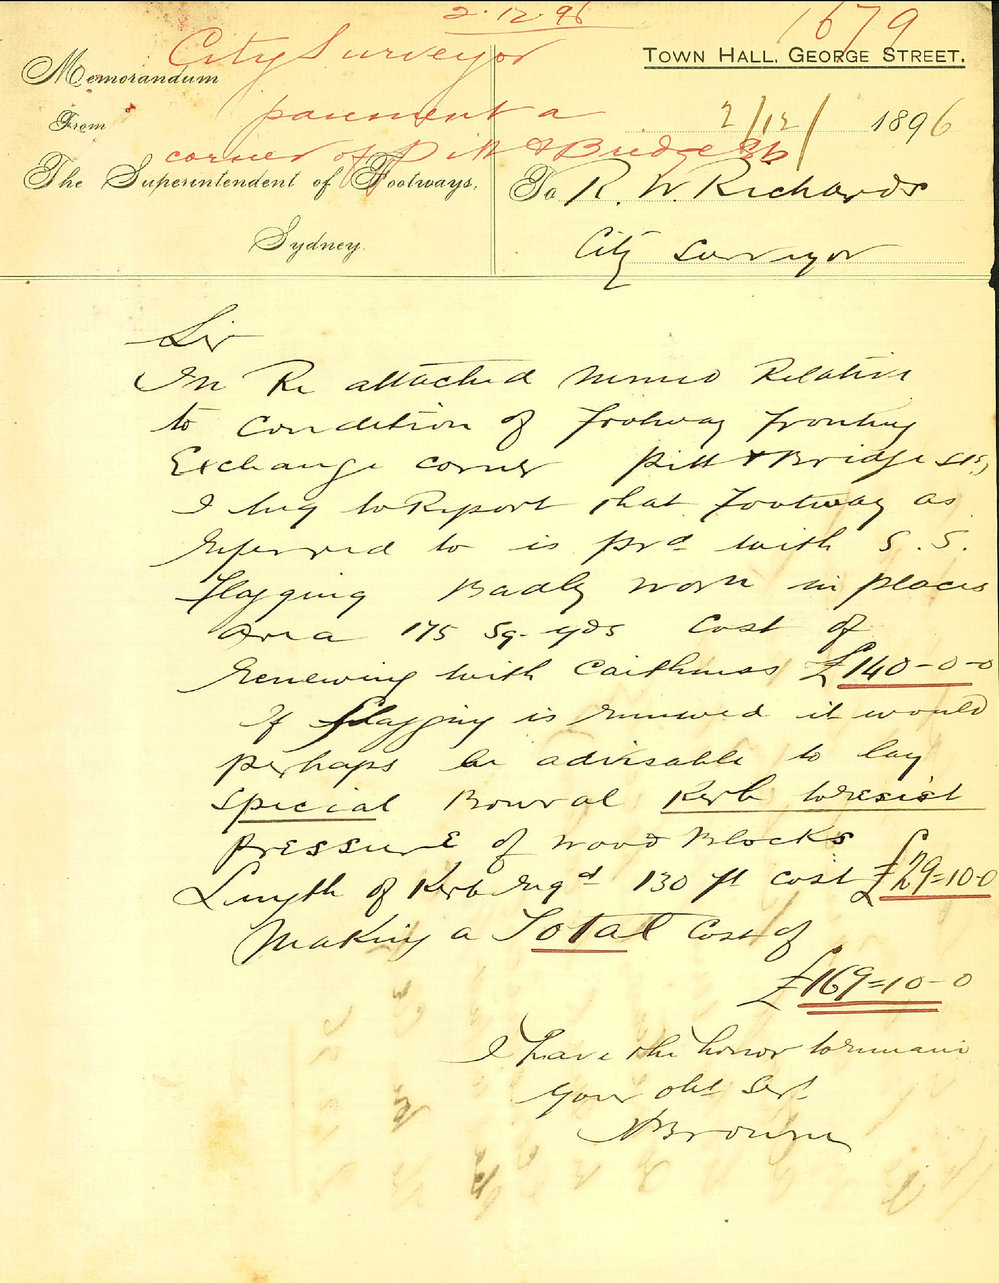 2.12.96
1679
City Surveyor
TOWN HALL, GEORGE STREET.
Memorandum
pavement a
From
2/12/ 1896
corner of Pitt & Bridge Sts
The Superintendent of Footways,
To R. W. Richards
Sydney.
City Surveyor
Sir
In Re attached memo Relative
to Condition of Footway Fronting
Exchange corner Pitt & Bridge Sts,
I beg to Report that Footway as
referred to is prd with S. S.
Flagging Badly worn in places
area 175 Sq. yds Cost of
renewing with Caithness £140-0-0
if flagging is renewed it would
perhaps be advisable to lay
special Bowral Kerb to resist
pressure of wood Blocks
Length of Kerb reqd 130 ft cost £29=10-0
Making a Total Cost of
£169=10-0
I have the honor to remain
your obt Servt
Browne